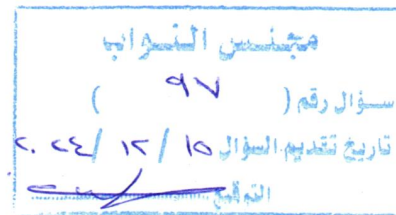 مجلس النواب
سؤال رقم ( ٩٧ )
تاريخ تقديم السؤال ١٥ / ١٢ / ٢٠٢٤
التوقيع